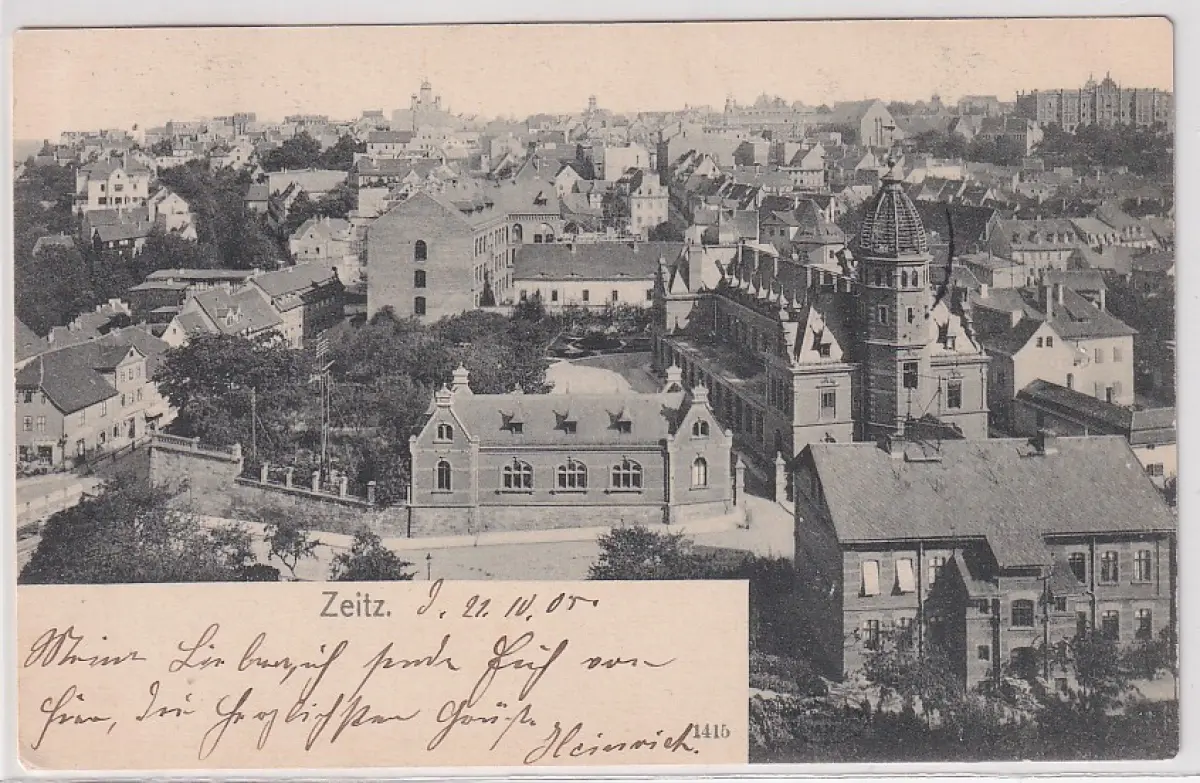 Zeitz. d. 22. IV. 05.
Meine Lieben, ich sende Euch von
hier, die herzlichsten Grüße
Heinrich.
1415